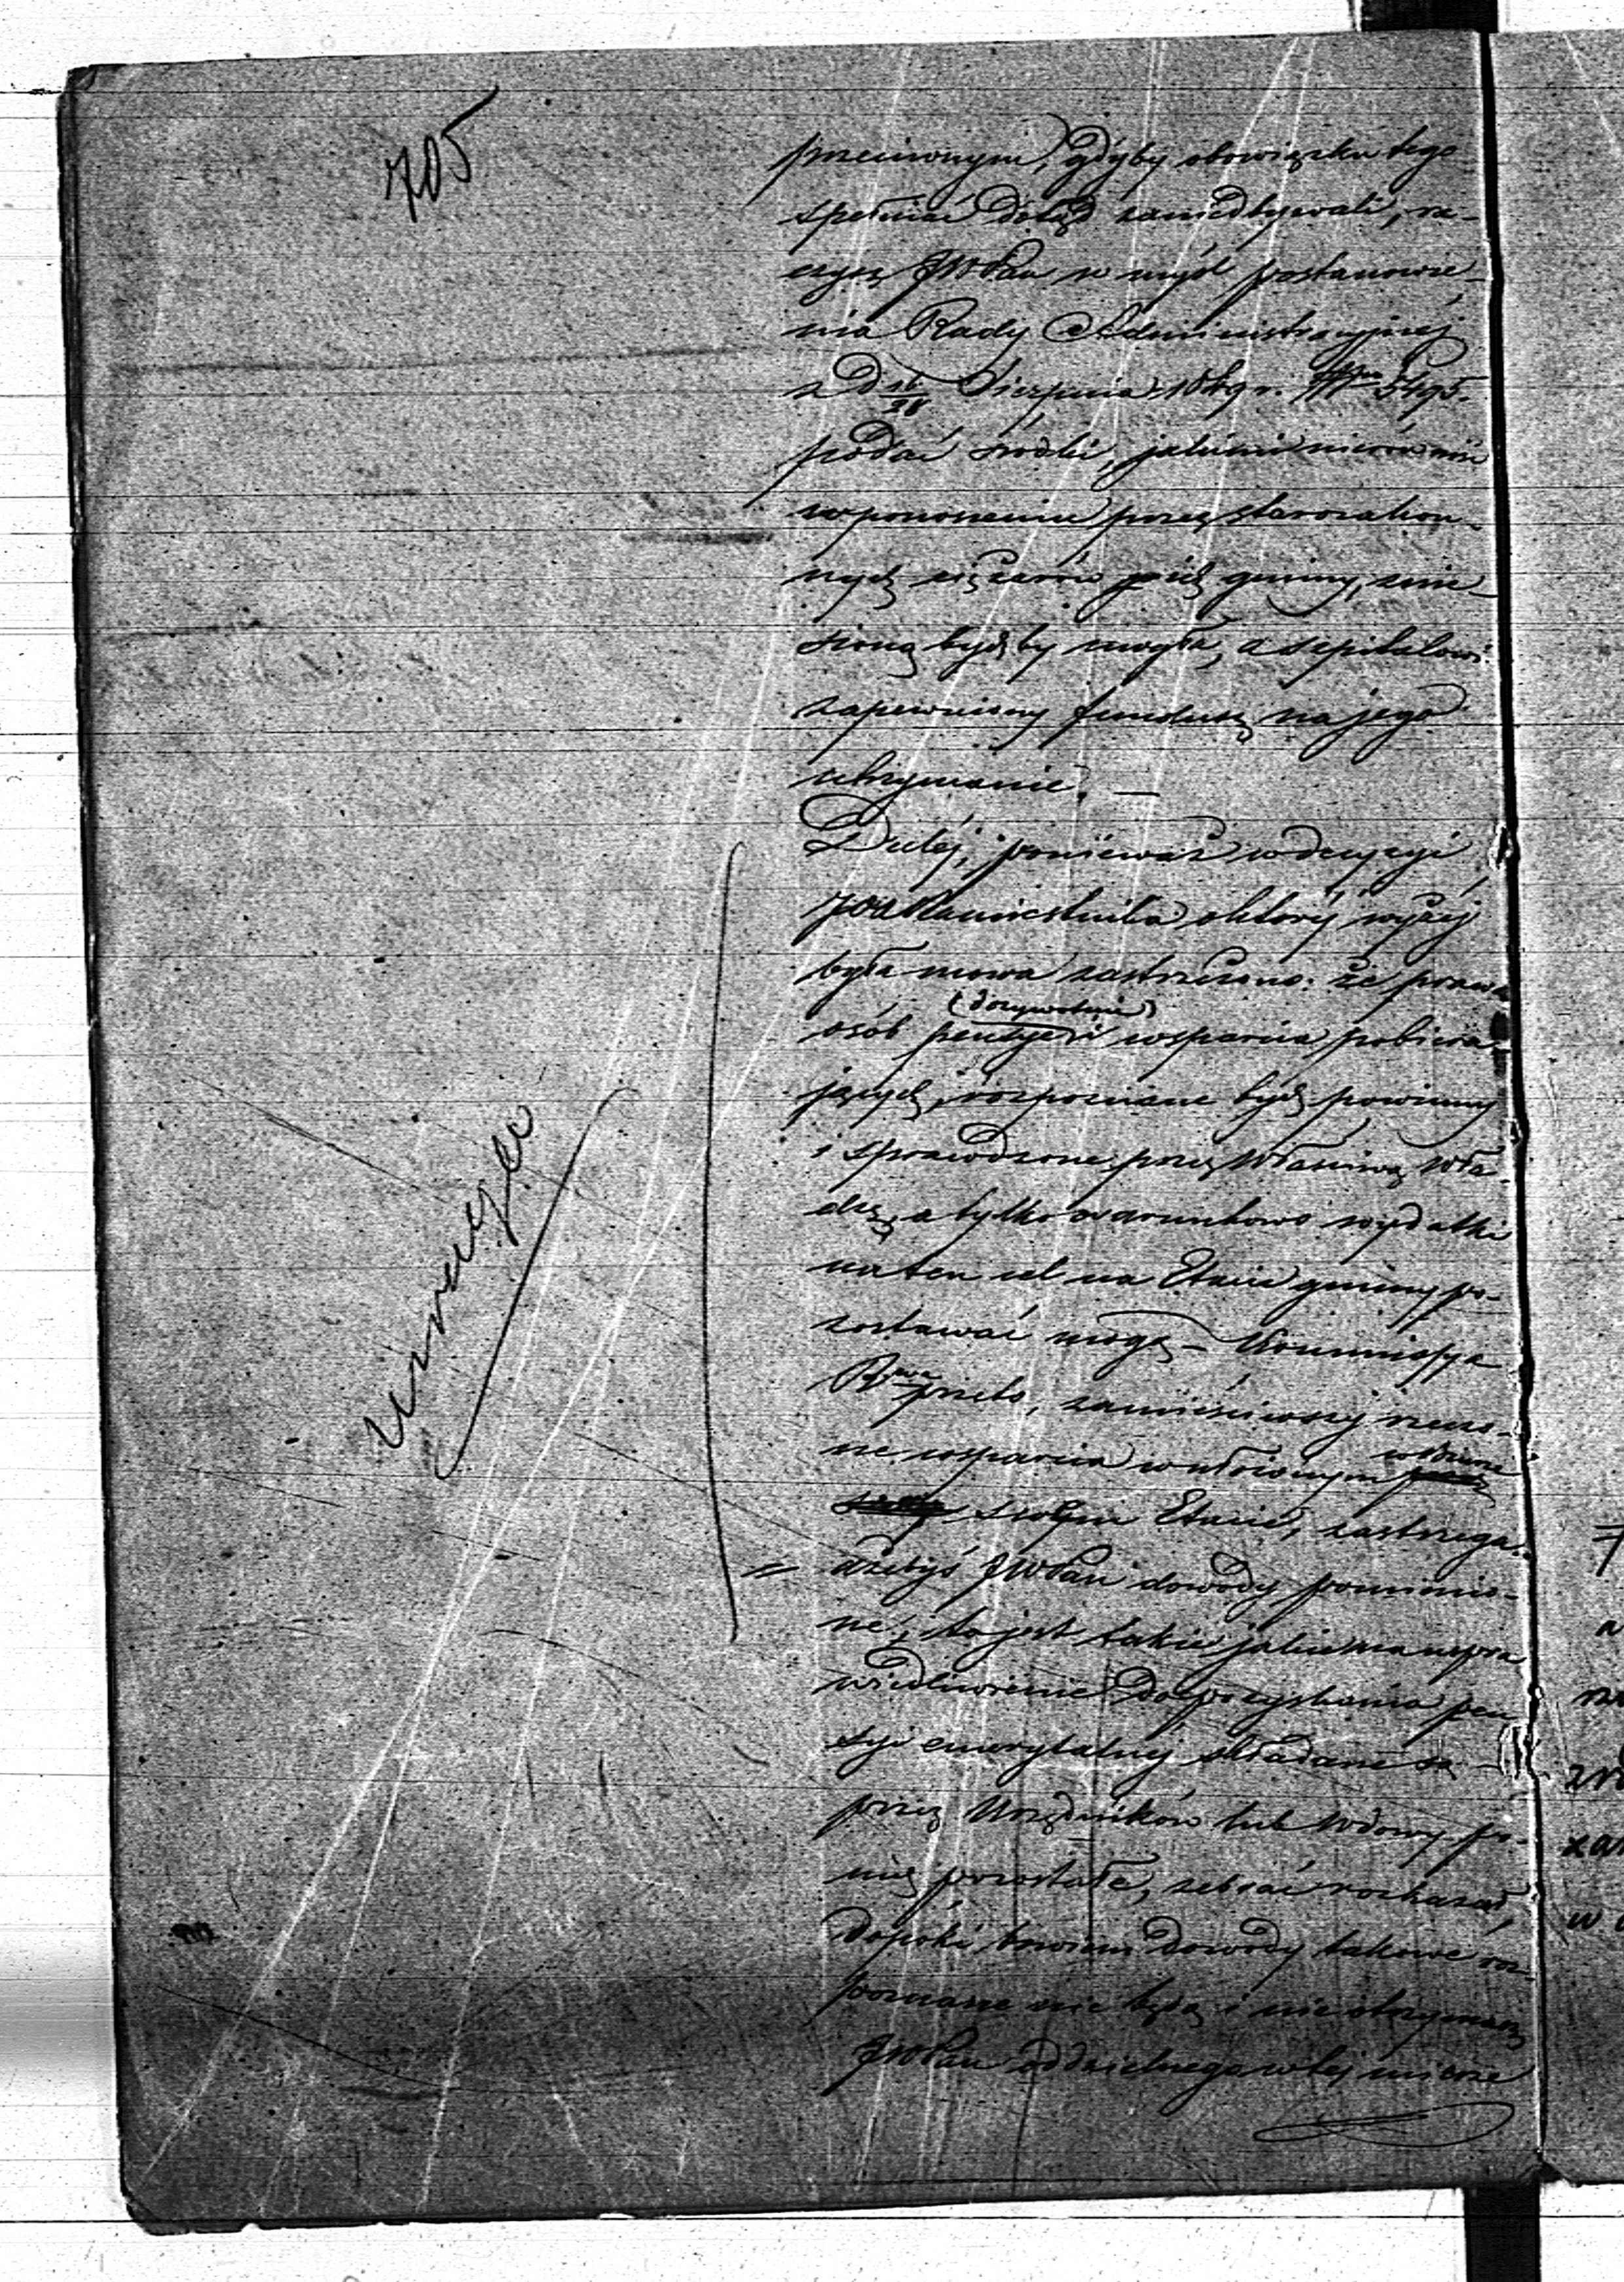 705
przeciwnym, gdyby obowiązku tego
spełniać dotąd zaniedbywali, ra-
czysz JWPan w myśl postanowie-
nia Rady Administracyjnej
z D 16/28 Sierpnia 1849 r. 5495.
podać środki, jakiemi nierówność
w ponoszeniu przez starozakon-
nych ciężarów gminy, znie-
sioną bydź by mogła, a szpitalowi
zapewniony fundusz na jego
utrzymanie. —
Daléj, ponieważ w decyzyi
JO Namiestnika o któréj wyżéj
była mowa zastrzeżono: że prawa
(dożywotnie)
osób pensye i wsparcia pobiera-
jących, rozpoznane bydź powinny
i sprawdzone przez właściwą wła-
dzę, a tylko warunkowo wydatki
na ten cel na Etacie gminy po-
zostawać mogą — Kommissya
Rwa przeto, zamieściwszy rzeczo-
ne wsparcia w
swoym Etacie, zastrzega
ażebyś JWPan dowody pomienio-
ne, to jest takie jakie na uspra
wiedliwienie do pozyskania pen
syi emerytalnéj składane są
przez Urzędników lub wdowy po
nich pozostałe, zebrać rozkazał,
dopóki bowiem dowody takowe roz-
poznane nie będą i nie otrzymasz
JWPan oddzielnego w téj mierze